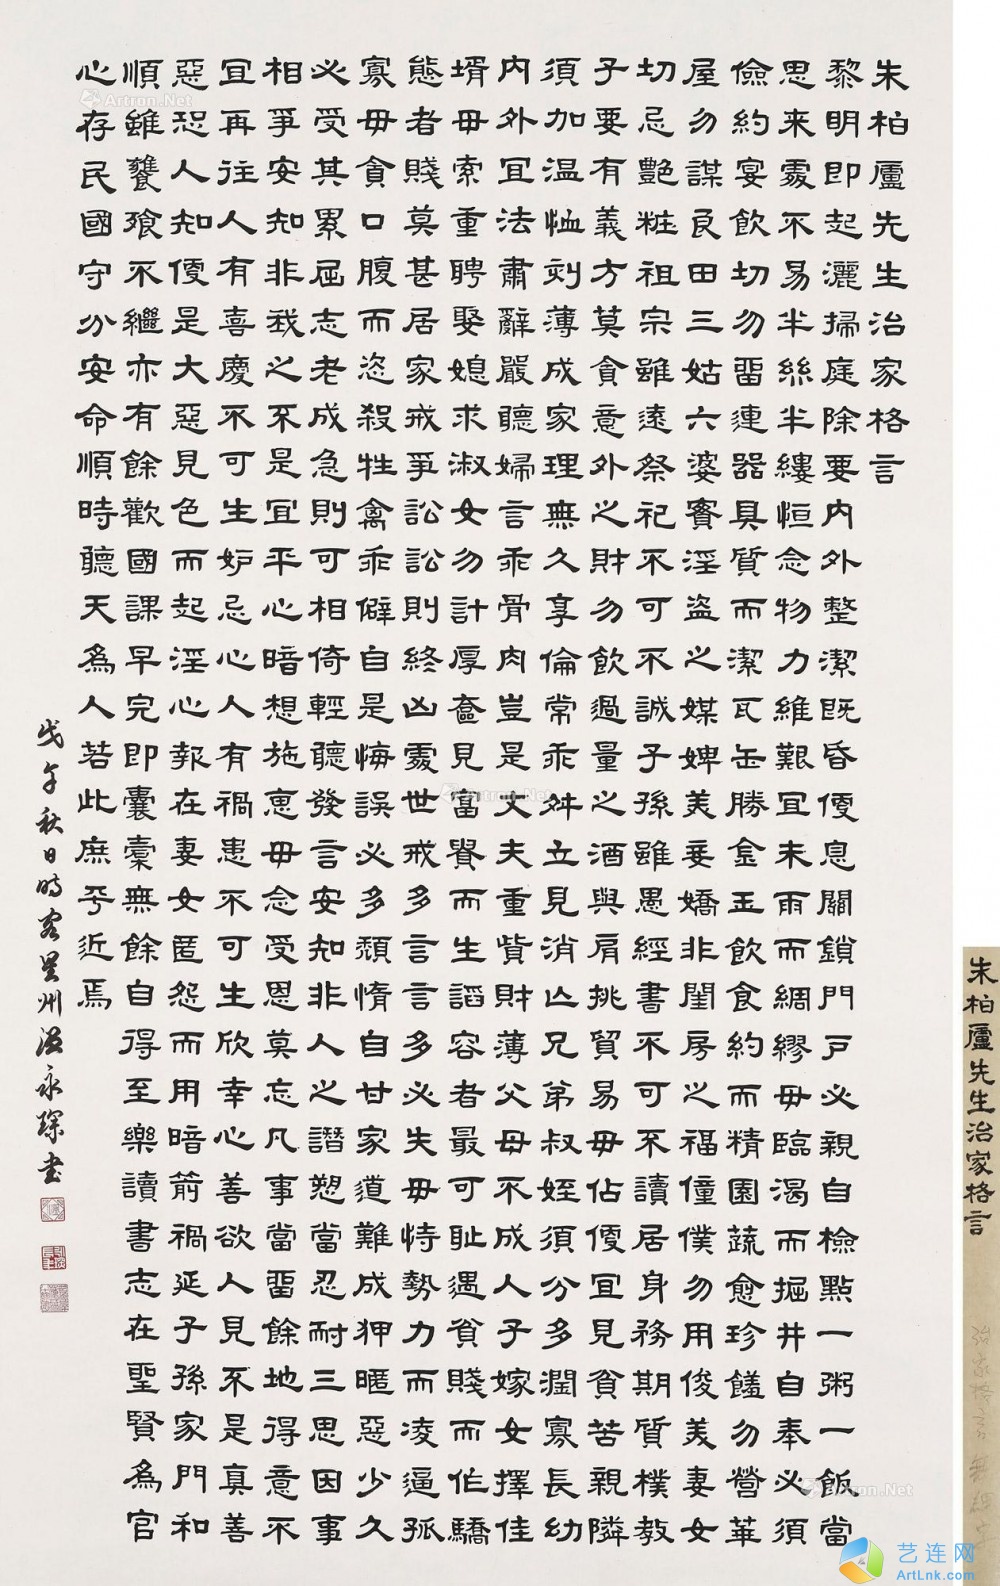 朱柏廬先生治家格言
黎明即起灑掃庭除要內外整潔既昏便息關鎖門戶必親自檢點一粥一飯當
思來處不易半絲半縷恒念物力維艱宜未雨而綢繆毋臨渴而掘井自奉必須
儉約宴飲切勿留連器具質而潔瓦缶勝金玉飲食約而精園蔬愈珍饈勿營華
屋勿謀良田三姑六婆實淫盜之媒婢美妾嬌非閨房之福僮僕勿用俊美妻女
切忌艷粧祖宗雖遠祭祀不可不誠子孫雖愚經書不可不讀居身務期質樸教
子要有義方莫貪意外之財勿飲過量之酒與肩挑貿易毋佔便宜見貧苦親隣
須加温恤刻薄成家理無久享倫常乖舛立見消亡兄弟叔姪須分多潤寡長幼
內外宜法肅辭嚴聽婦言乖骨肉豈是丈夫重貲財薄父母不成人子嫁女擇佳
壻毋索重聘娶媳求淑女勿計厚奩見富貴而生諂容者最可恥遇貧賤而作驕
態者賤莫甚居家戒爭訟訟則終凶處世戒多言言多必失毋恃勢力而凌逼孤
寡毋貪口腹而恣殺牲禽乖僻自是悔誤必多頹惰自甘家道難成狎暱惡少久
必受其累屈志老成急則可相倚輕聽發言安知非人之譖愬當忍耐三思因事
相爭安知非我之不是宜平心暗想施惠毋念受恩莫忘凡事當留餘地得意不
宜再往人有喜慶不可生妒忌心人有禍患不可生欣幸心善欲人見不是真善
惡恐人知便是大惡見色而起淫心報在妻女匿怨而用暗箭禍延子孫家門和
順雖饔飧不繼亦有餘歡國課早完即囊橐無餘自得至樂讀書志在聖賢為官
心存民國守分安命順時聽天為人若此庶乎近焉
戊午秋日時客星州溫永琛書
朱柏廬先生治家格言
Artron.Net
Artron.Net
Artron.Net
艺连网
ArtLnk.com